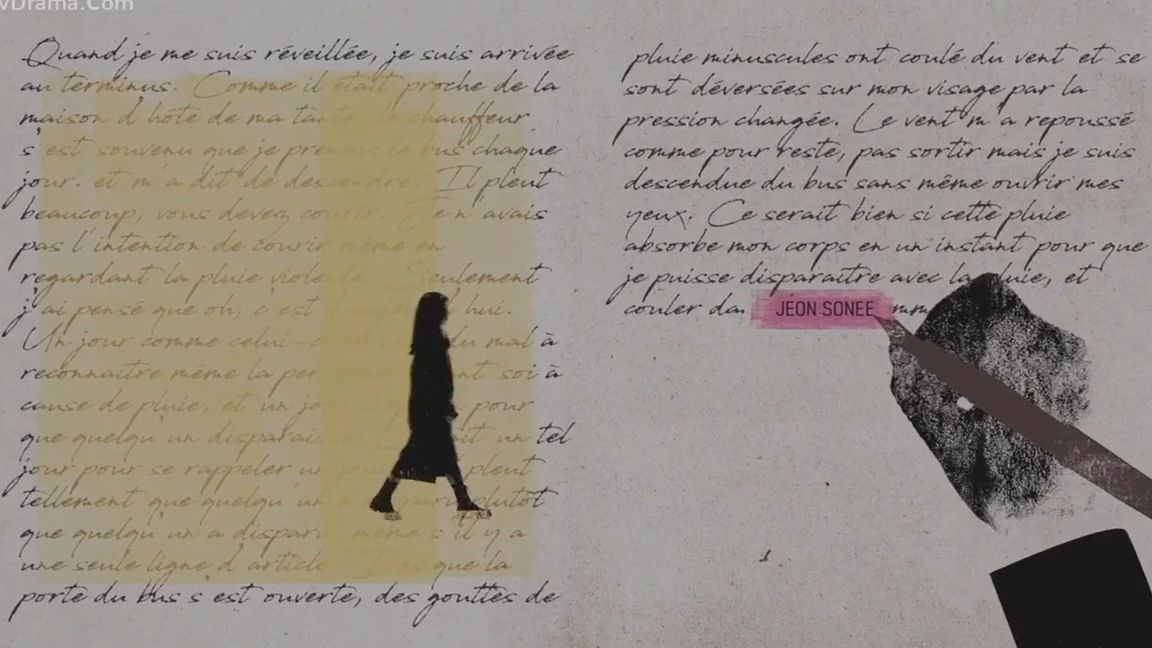 vDrama.Com
Quand je me suis réveillée, je suis arrivée
au terminus. Comme il était proche de la
maison d hôte de ma tante le chauffeur
s est souvenu que je prenais le bus chaque
jour. et m a dit de descendre. Il pleut
beaucoup, vous devez courir. Je n avais
pas l intention de courir même en
regardant la pluie violente. Seulement
j ai pensé que oh, c est hui.
Un jour comme celui-c du mal à
reconnaitre même la per nt soi à
cause de pluie, et un jo pour
que quelqu un disparais it un tel
jour pour se rappeler un pleut
tellement que quelqu un plutôt
que quelqu un a disparu même s il y a
une seule ligne d article. Dès que la
porte du bus s est ouverte, des gouttes de
pluie minuscules ont coulé du vent et se
sont déversées sur mon visage par la
pression changée. Le vent m a repoussé
comme pour reste, pas sortir mais je suis
descendue du bus sans même ouvrir mes
yeux. Ce serait bien si cette pluie
absorbe mon corps en un instant pour que
je puisse disparaitre avec la pluie, et
couler da JEON SONEE mm